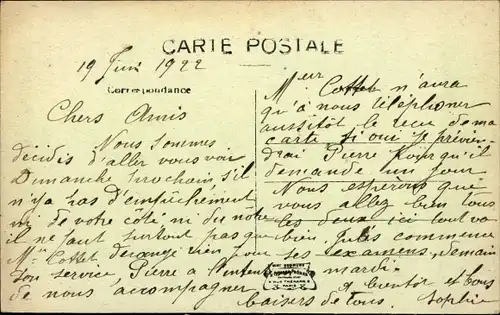 CARTE POSTALE
19 Juin 1922
Correspondance
Chers Amis
Nous sommes
décidis d'aller vous voir
Dimanche prochain, s'il
n'y a pas d'empêchement
ni de votre côté ni du notre
il ne faut surtout pas que
Mme Cottet derange rien pour
son service, Pierre a l'intention
de nous accompagner
Mr Cotteb n'aura
qu'à nous téléphoner
aussitôt le recu de ma
carte si oui je préviendrai
Pierre qu'il
demande un jour
Nous esperons que
vous allez bien tous
les deux ici tout va
bien. Jules commence
ses examens demain
mardi.
A bientôt et bons
baisers de tous. Sophie